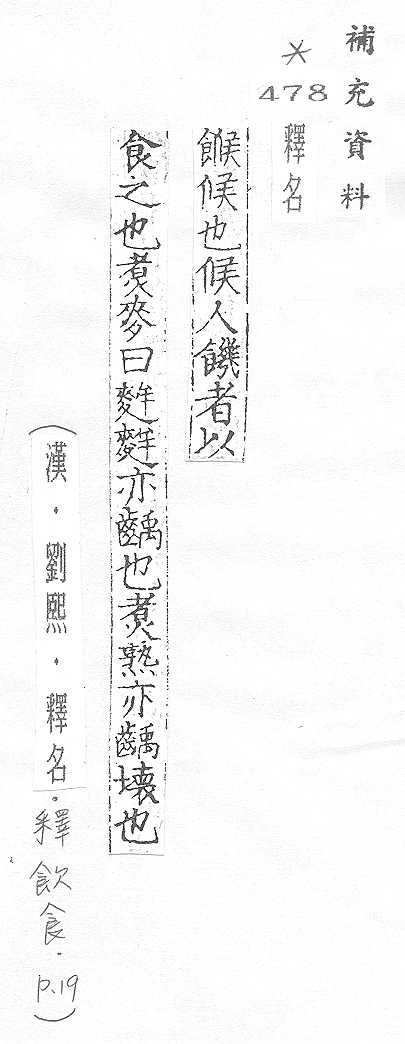 補充資料
* 478 釋名
餱候也候人饑者以
食之也煮麥曰麰麰亦齲也煮熟亦齲壞也
(漢.劉熙.釋名.釋飲食.p.19)